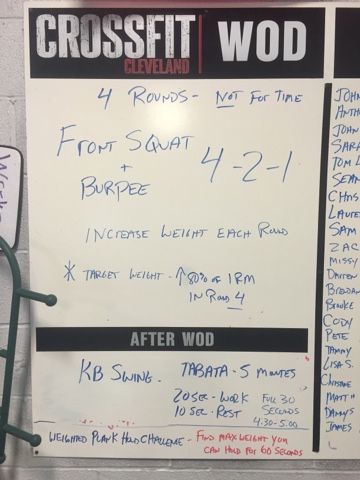 CROSSFIT
CLEVELAND
WOD
4 ROUNDS - NOT FOR TIME
FRONT SQUAT
+
BURPEE
4-2-1
INCREASE WEIGHT EACH ROUND
* TARGET WEIGHT - ↑ 80% OF 1RM
IN ROUND 4
AFTER WOD
KB SWING - TABATA - 5 MINUTES
20 SEC - WORK
10 SEC - REST
FULL 30
SECONDS
4:30-5:00
WEIGHTED PLANK HOLD CHALLENGE - FIND MAX WEIGHT YOU
CAN HOLD FOR 60 SECONDS
JOHN
ANTH
JOHN
SARA
TOM L
SEAN
CHAS
LAURE
SAM
ZAC
MISSY
DARREN
BRENDAN
BROOKE
CODY
PETE
TAMMY
LISA S.
CHRISTINE
MATT H
DANNY S
JAMES